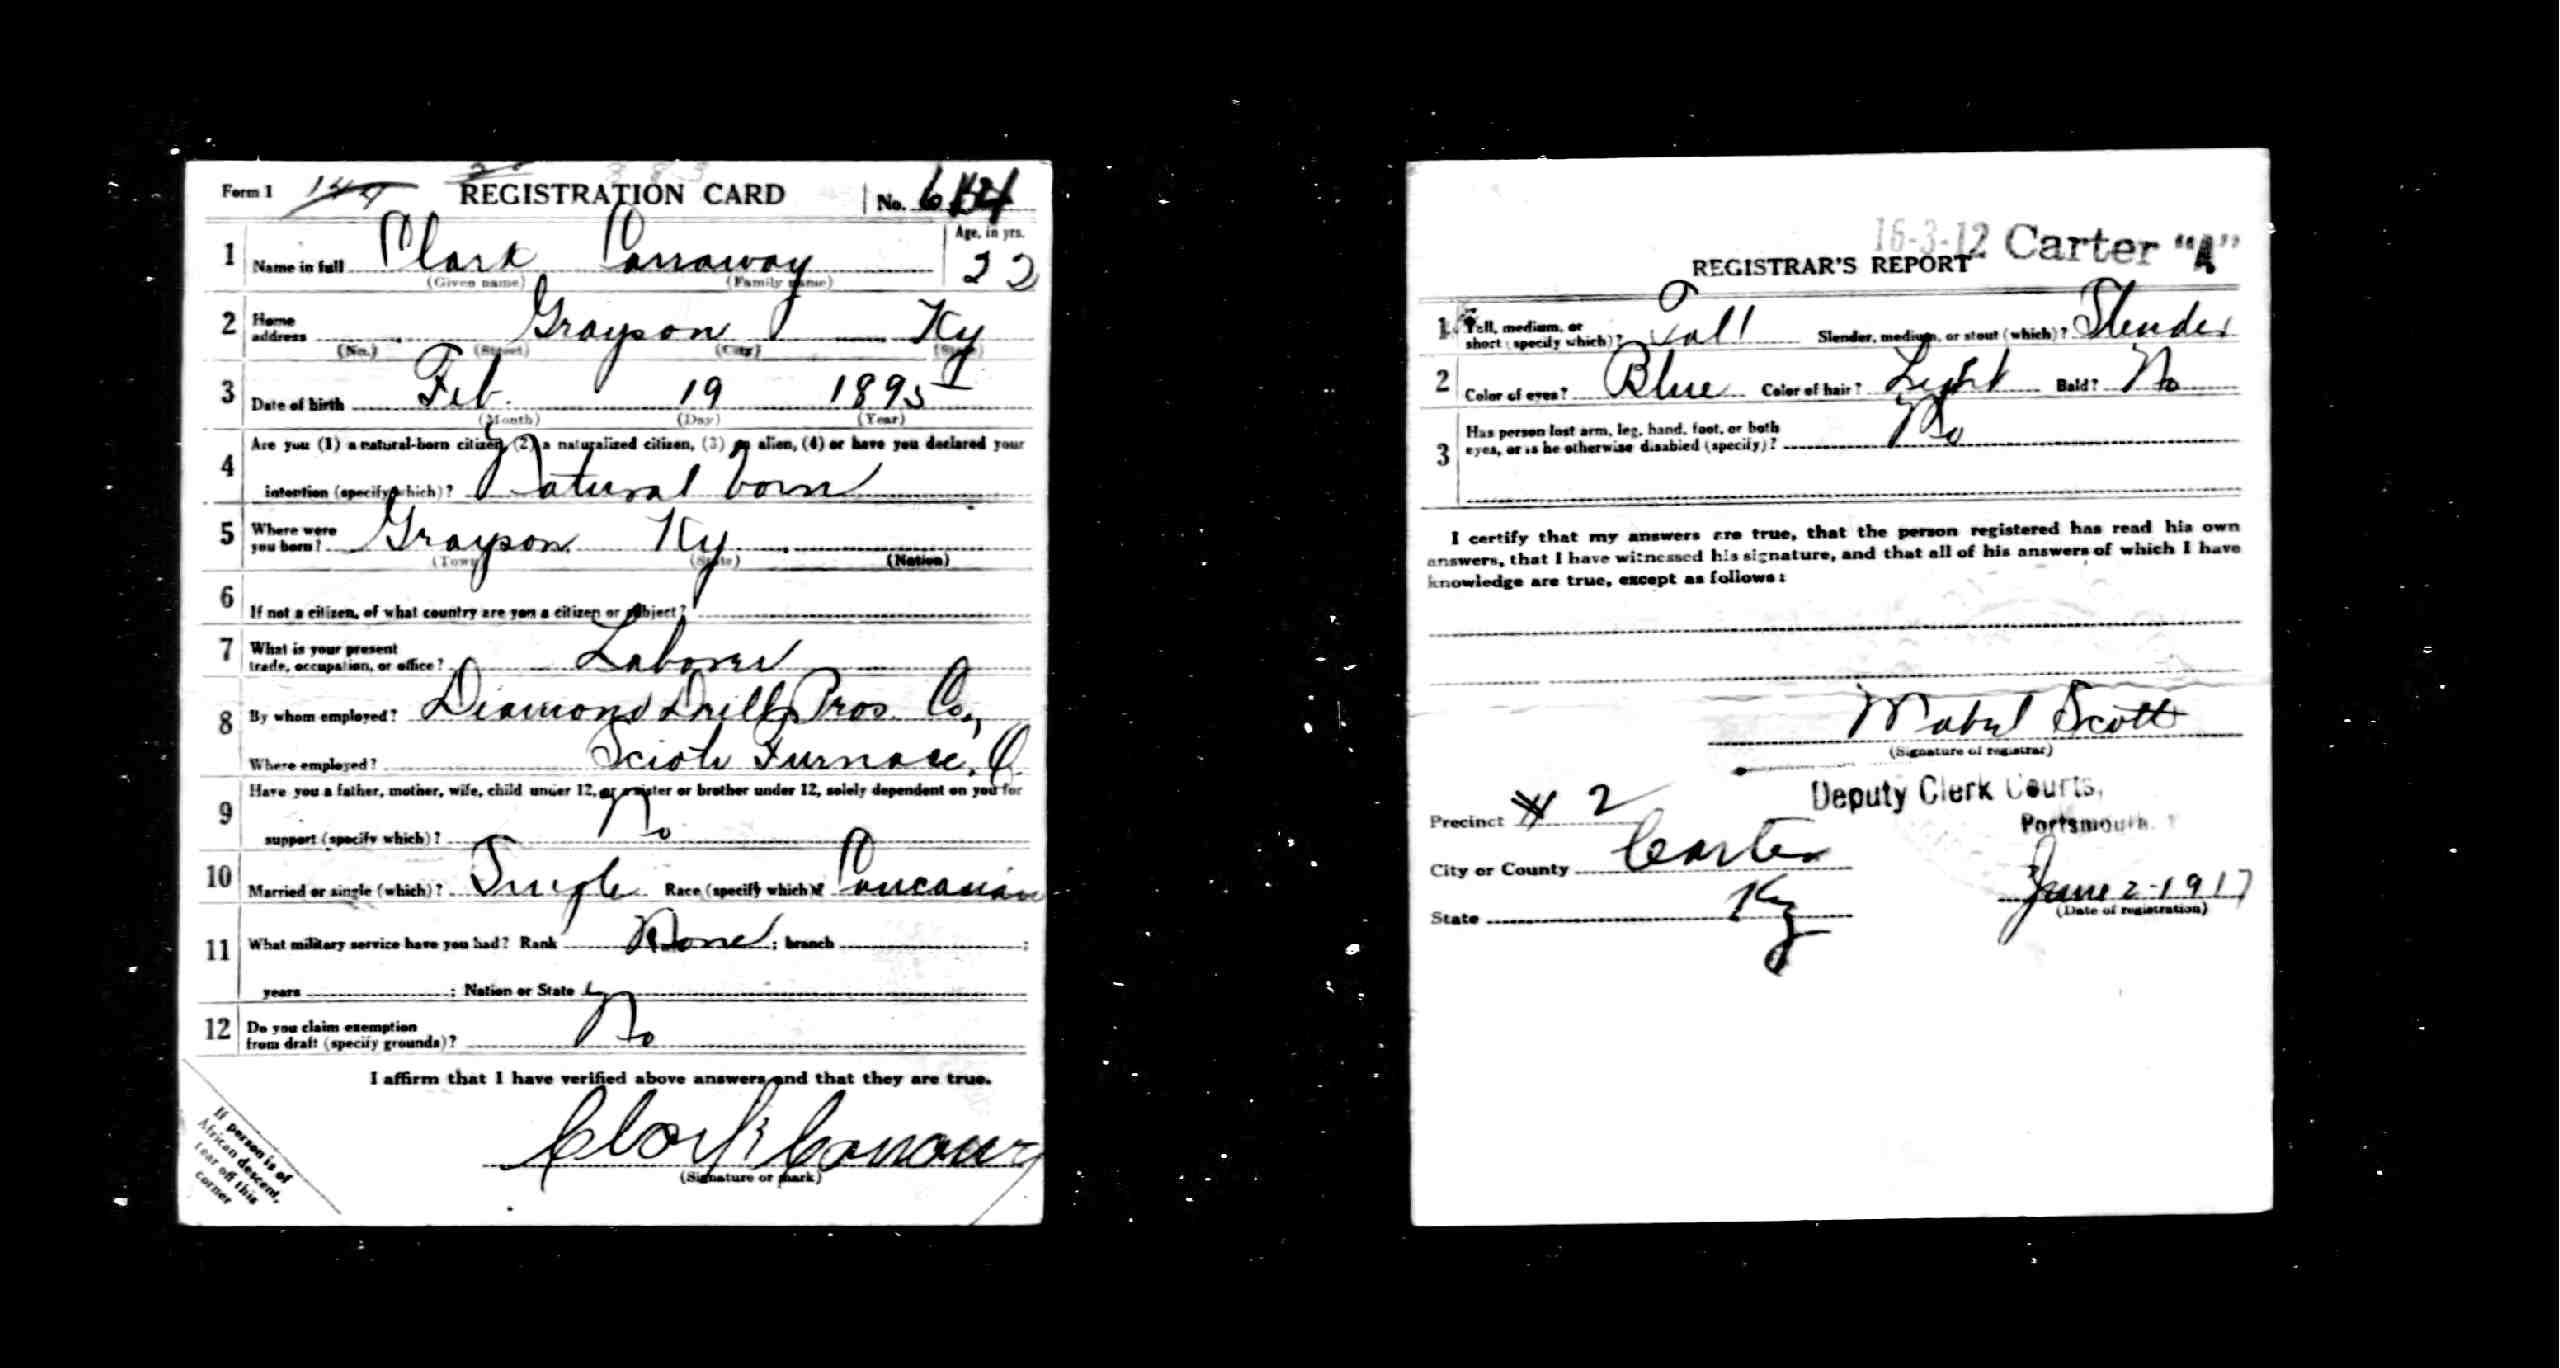 Form 1 144 REGISTRATION CARD No. 
1 Name in full Clark Carraway Age, in yrs. 22
(Given name) (Family name)
2 Home address Grayson Ky
(No.) (Street) (City) (State)
3 Date of birth Feb. 19 1895
(Month) (Day) (Year)
4 Are you (1) a natural-born citizen, (2) a naturalized citizen, (3) an alien, (4) or have you declared your
intention (specify which)? Natural born
5 Where were you born? Grayson Ky
(Town) (State) (Nation)
6 If not a citizen, of what country are you a citizen or subject?
7 What is your present trade, occupation, or office? Laborer
8 By whom employed? Diamond Drill Pros. Co.,
Where employed? Scioto Furnace, O.
9 Have you a father, mother, wife, child under 12, or a sister or brother under 12, solely dependent on you for
support (specify which)? No
10 Married or single (which)? Single Race (specify which)? Caucasian
11 What military service have you had? Rank None ; branch ;
years ; Nation or State
12 Do you claim exemption from draft (specify grounds)? No
I affirm that I have verified above answers and that they are true.
Clark Carraway
(Signature or mark)
If person is of
African descent,
tear off this
corner
16-3-12 Carter "A"
REGISTRAR'S REPORT
1 Tall, medium, or short (specify which)? Tall Slender, medium, or stout (which)? Slender
2 Color of eyes? Blue Color of hair? Light Bald? No
3 Has person lost arm, leg, hand, foot, or both
eyes, or is he otherwise disabled (specify)? No
I certify that my answers are true, that the person registered has read his own
answers, that I have witnessed his signature, and that all of his answers of which I have
knowledge are true, except as follows:
Mabel Scott
(Signature of registrar)
Deputy Clerk Courts,
Portsmouth.
Precinct # 2
City or County Carter
State Ky
June 2-1917
(Date of registration)